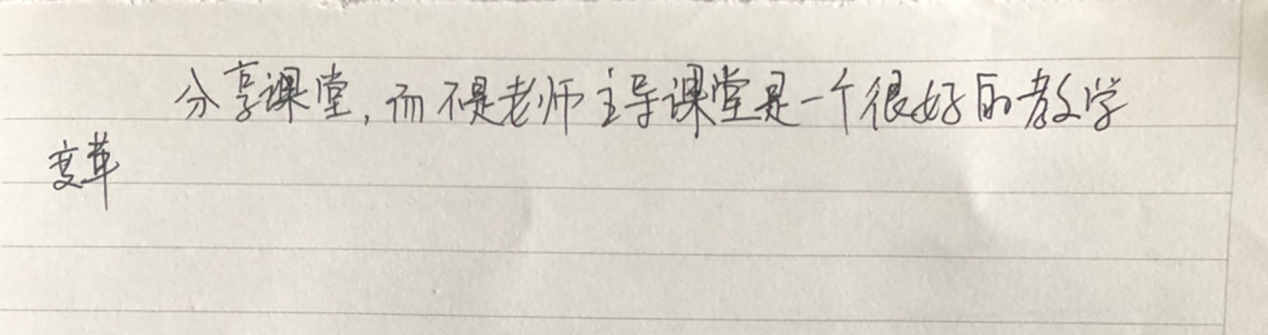 分享课堂,而不是老师主导课堂是一个很好的教学
变革